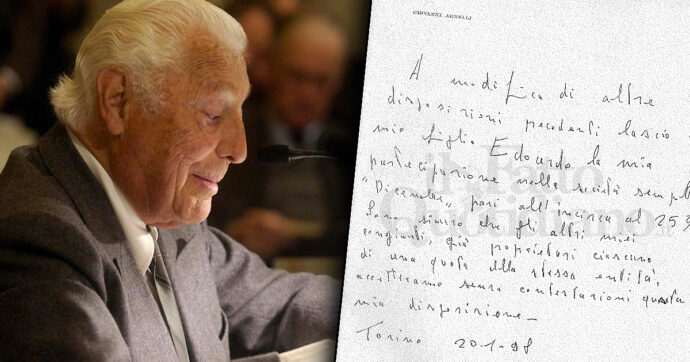 GIOVANNI AGNELLI
A modifica di altre
disposizioni precedenti lascio a
mio figlio Edoardo la mia
partecipazione nella società semplice
"Dicembre", pari all'incirca al 25%
Sono sicuro che gli altri miei
congiunti, già proprietari ciascuno
di una quota della stessa entità,
accetteranno senza contestazioni questa
mia disposizione_
Torino 20.1.98
il Fatto
Quotidiano